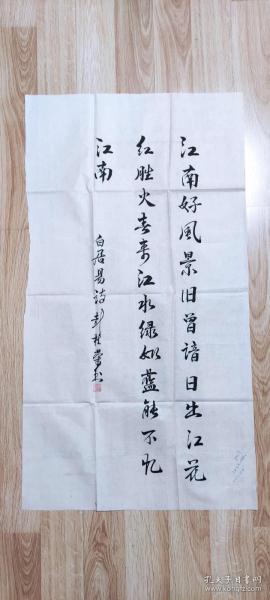 江南好风景旧曾谙日出江花
红胜火春来江水绿如蓝能不忆
江南
白居易诗彭
书
孔夫子旧书网